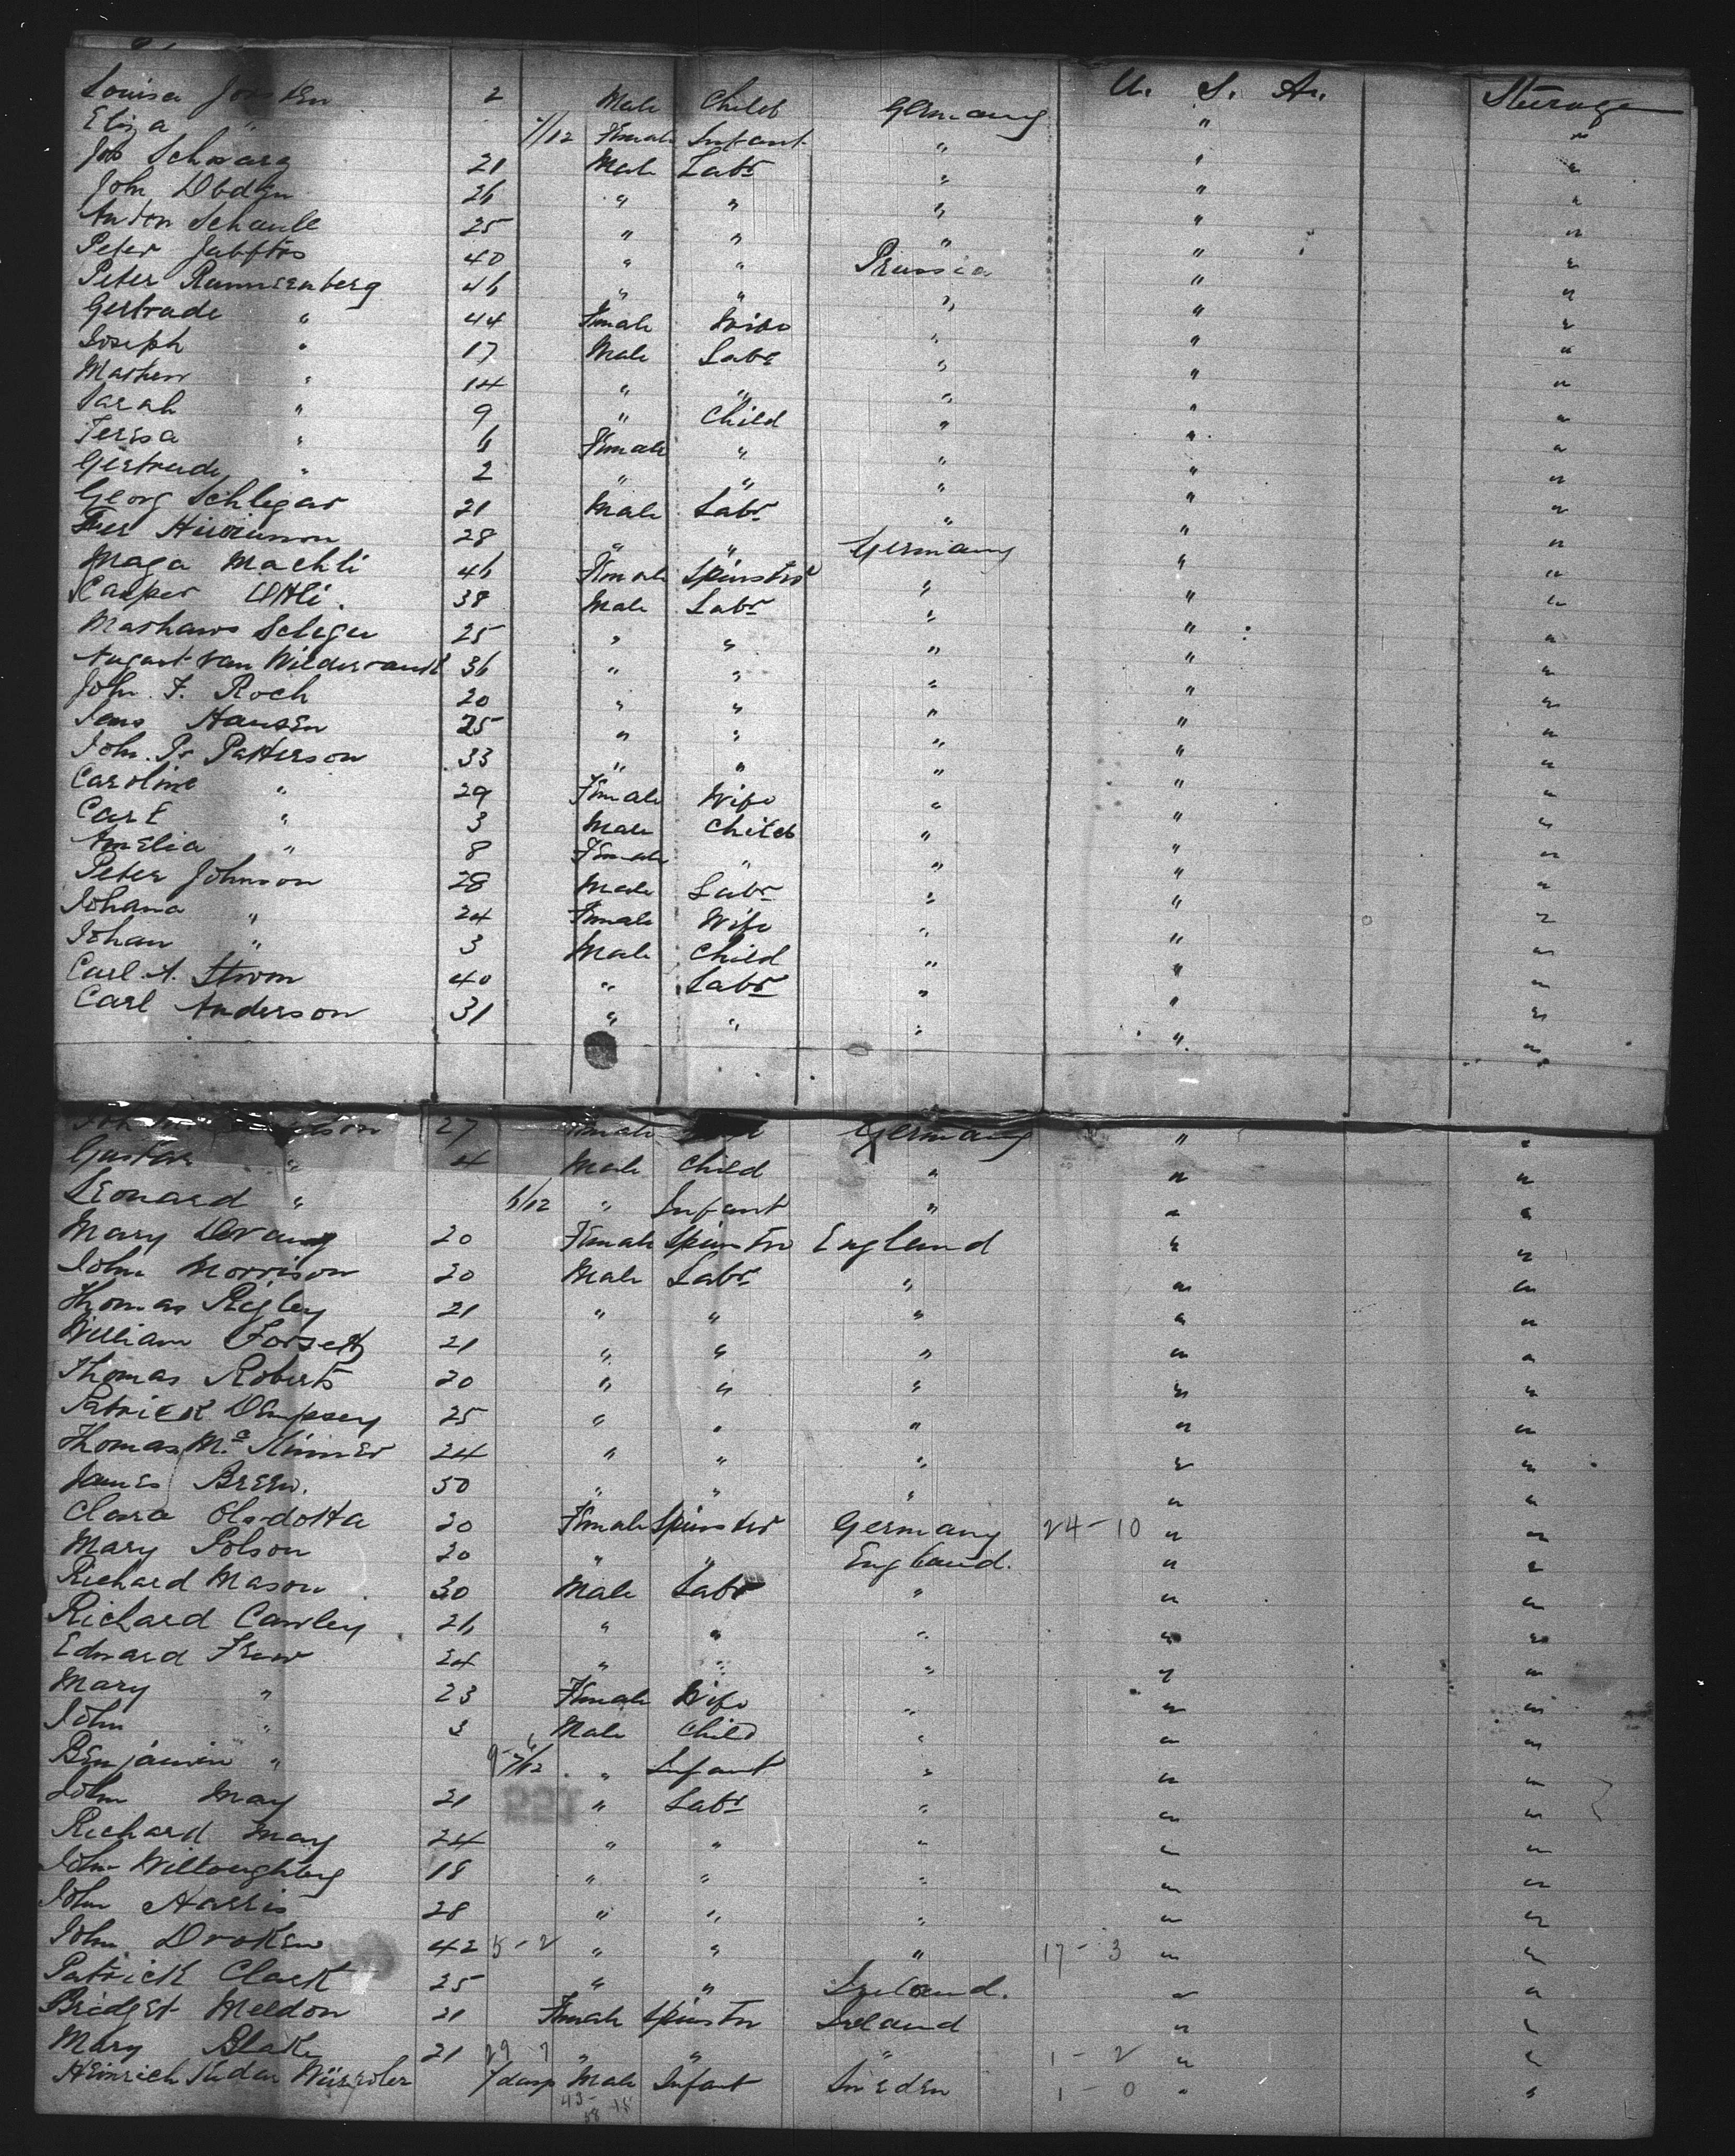 Louisa 2 Male Child Germany U. S. A. Steerage
Eliza " /12 Female Infant " " "
Schwarz 21 Male Labr " " "
John 26 " " " " "
Anton Schaule 25 " " " " "
Peter 40 " " Prussia " "
Peter Rannenberg 46 " " " " "
Gertrude " 44 Female Wife " " "
Joseph " 17 Male Labr " " "
Mathew " 14 " " " " "
Sarah " 9 " Child " " "
Teresa " 6 Female " " " "
Gertrude " 2 " " " " "
Georg Schlegar 21 Male Labr " " "
28 " " Germany " "
Maga Machli 46 Female Spinster " " "
Casper 38 Male Labr " " "
25 " " " " "
August Van 36 " " " " "
John F. Roch 20 " " " " "
Jens Hansen 25 " " " " "
John P. Patterson 33 " " " " "
Caroline " 29 Female Wife " " "
Carl " 3 Male Child " " "
Amelia " 8 Female " " " "
Peter Johnson 28 Male Labr " " "
Johana " 24 Female Wife " " "
Johan " 3 Male Child " " "
Carl A. Strom 40 " Labr " " "
Carl Anderson 31 " " " " "
27 Female Germany " "
Gustav " 4 Male Child " " "
Leonard " 6/12 " Infant " " "
Mary 20 Female Spinstr England " "
John Morrison 20 Male Labr " " "
Thomas Rigley 21 " " " " "
William 21 " " " " "
Thomas Roberts 20 " " " " "
Patrick Dempsey 25 " " " " "
Thomas Mc 24 " " " " "
James Breen. 50 " " " " "
Clara Olsdotta 20 Female Spinster Germany 24-10 " "
Mary Polson 20 " " England. " "
Richard Mason 30 Male Labr " " "
Richard Cawley 26 " " " " "
Edward Frew 24 " " " " "
Mary " 23 Female Wife " " "
John " 3 Male Child " " "
Benjamin " /12 " Infant " " "
John May 21 " Labr " " "
Richard May 24 " " " " "
John Willoughby 18 " " " " "
John Harris 28 " " " " "
John Droken 42 5-2 " " " 17-3 " "
Patrick Clark 25 " " Ireland. " "
Bridget Meldon 21 Female Spinstr Ireland " "
Mary Blake 21 " " " 1-2 " "
Heinrich days Male Infant Sweden 1-0 " "